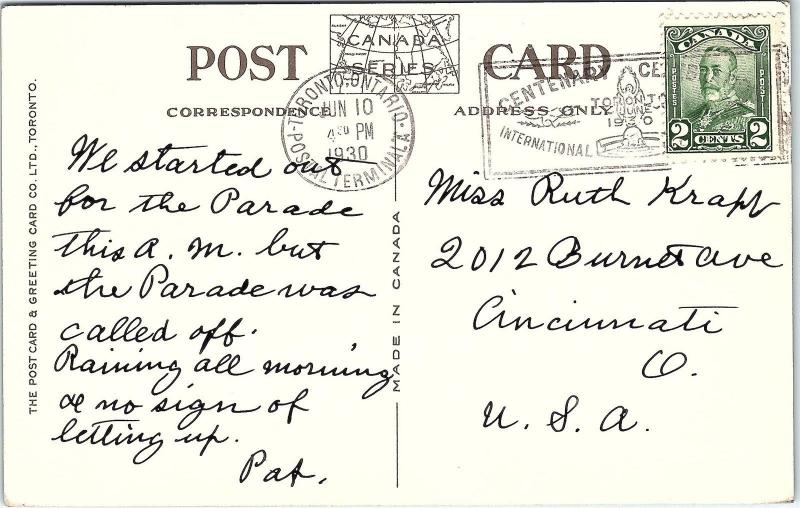 POST CARD
CANADA
SERIES
CORRESPONDENCE
ADDRESS ONLY
TORONTO, ONTARIO
JUN 10
4 30 PM
1930
POSTAL TERMINAL A
CENTENARY
INTERNATIONAL
TORONTO
JUNE
1930
CE
CANADA
POSTES POSTAGE
2 CENTS 2
We started out
for the Parade
this A. M. but
the Parade was
called off.
Raining all morning
& no sign of
letting up.
Pat.
Miss Ruth Krapf
2012 Burnet Ave
Cincinnati
O.
U. S. A.
MADE IN CANADA
THE POST CARD & GREETING CARD CO. LTD., TORONTO.